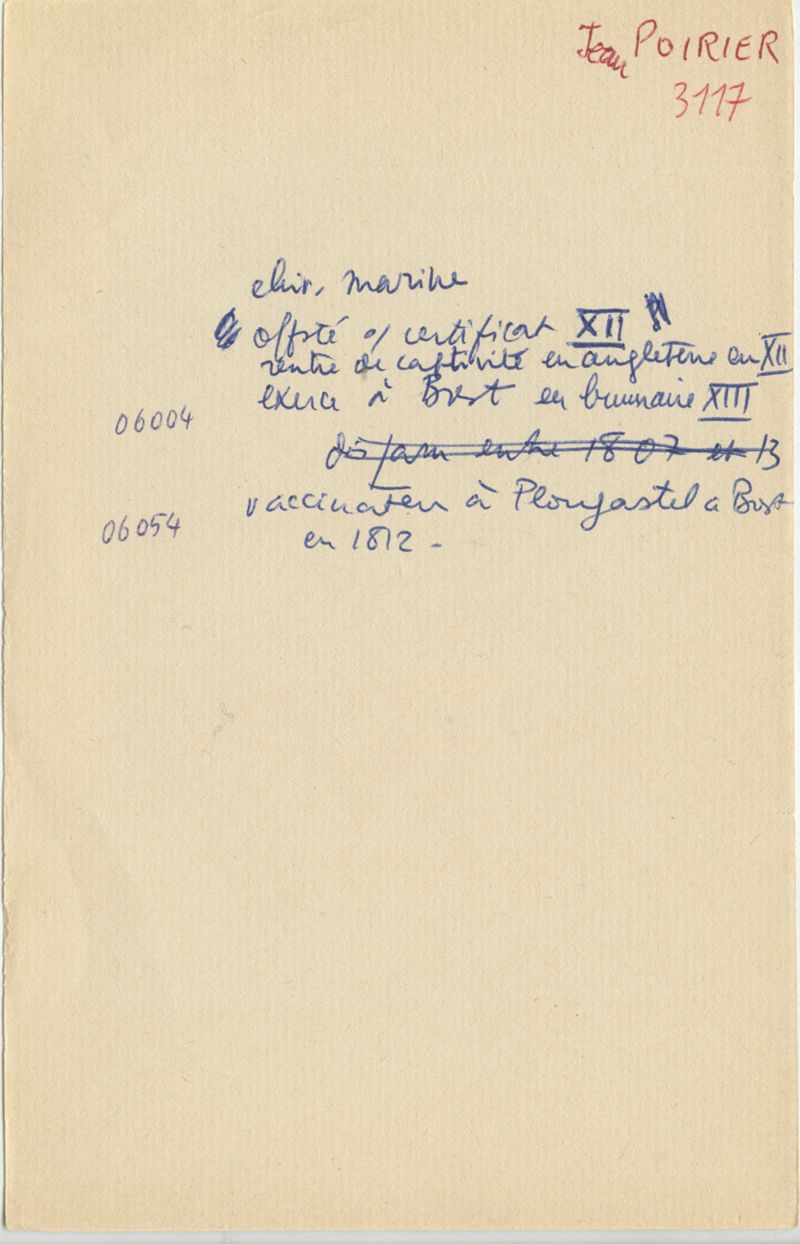 Jean POIRIER
3117
chir. marine
offsté o/ certificat XII
rentre de captivité en angleterre en XII
06004 exerce à Brest en brumaire XIII
dispar entre 1807 et 13
vaccinateur à Plougastel a Brest
06054 en 1812 -